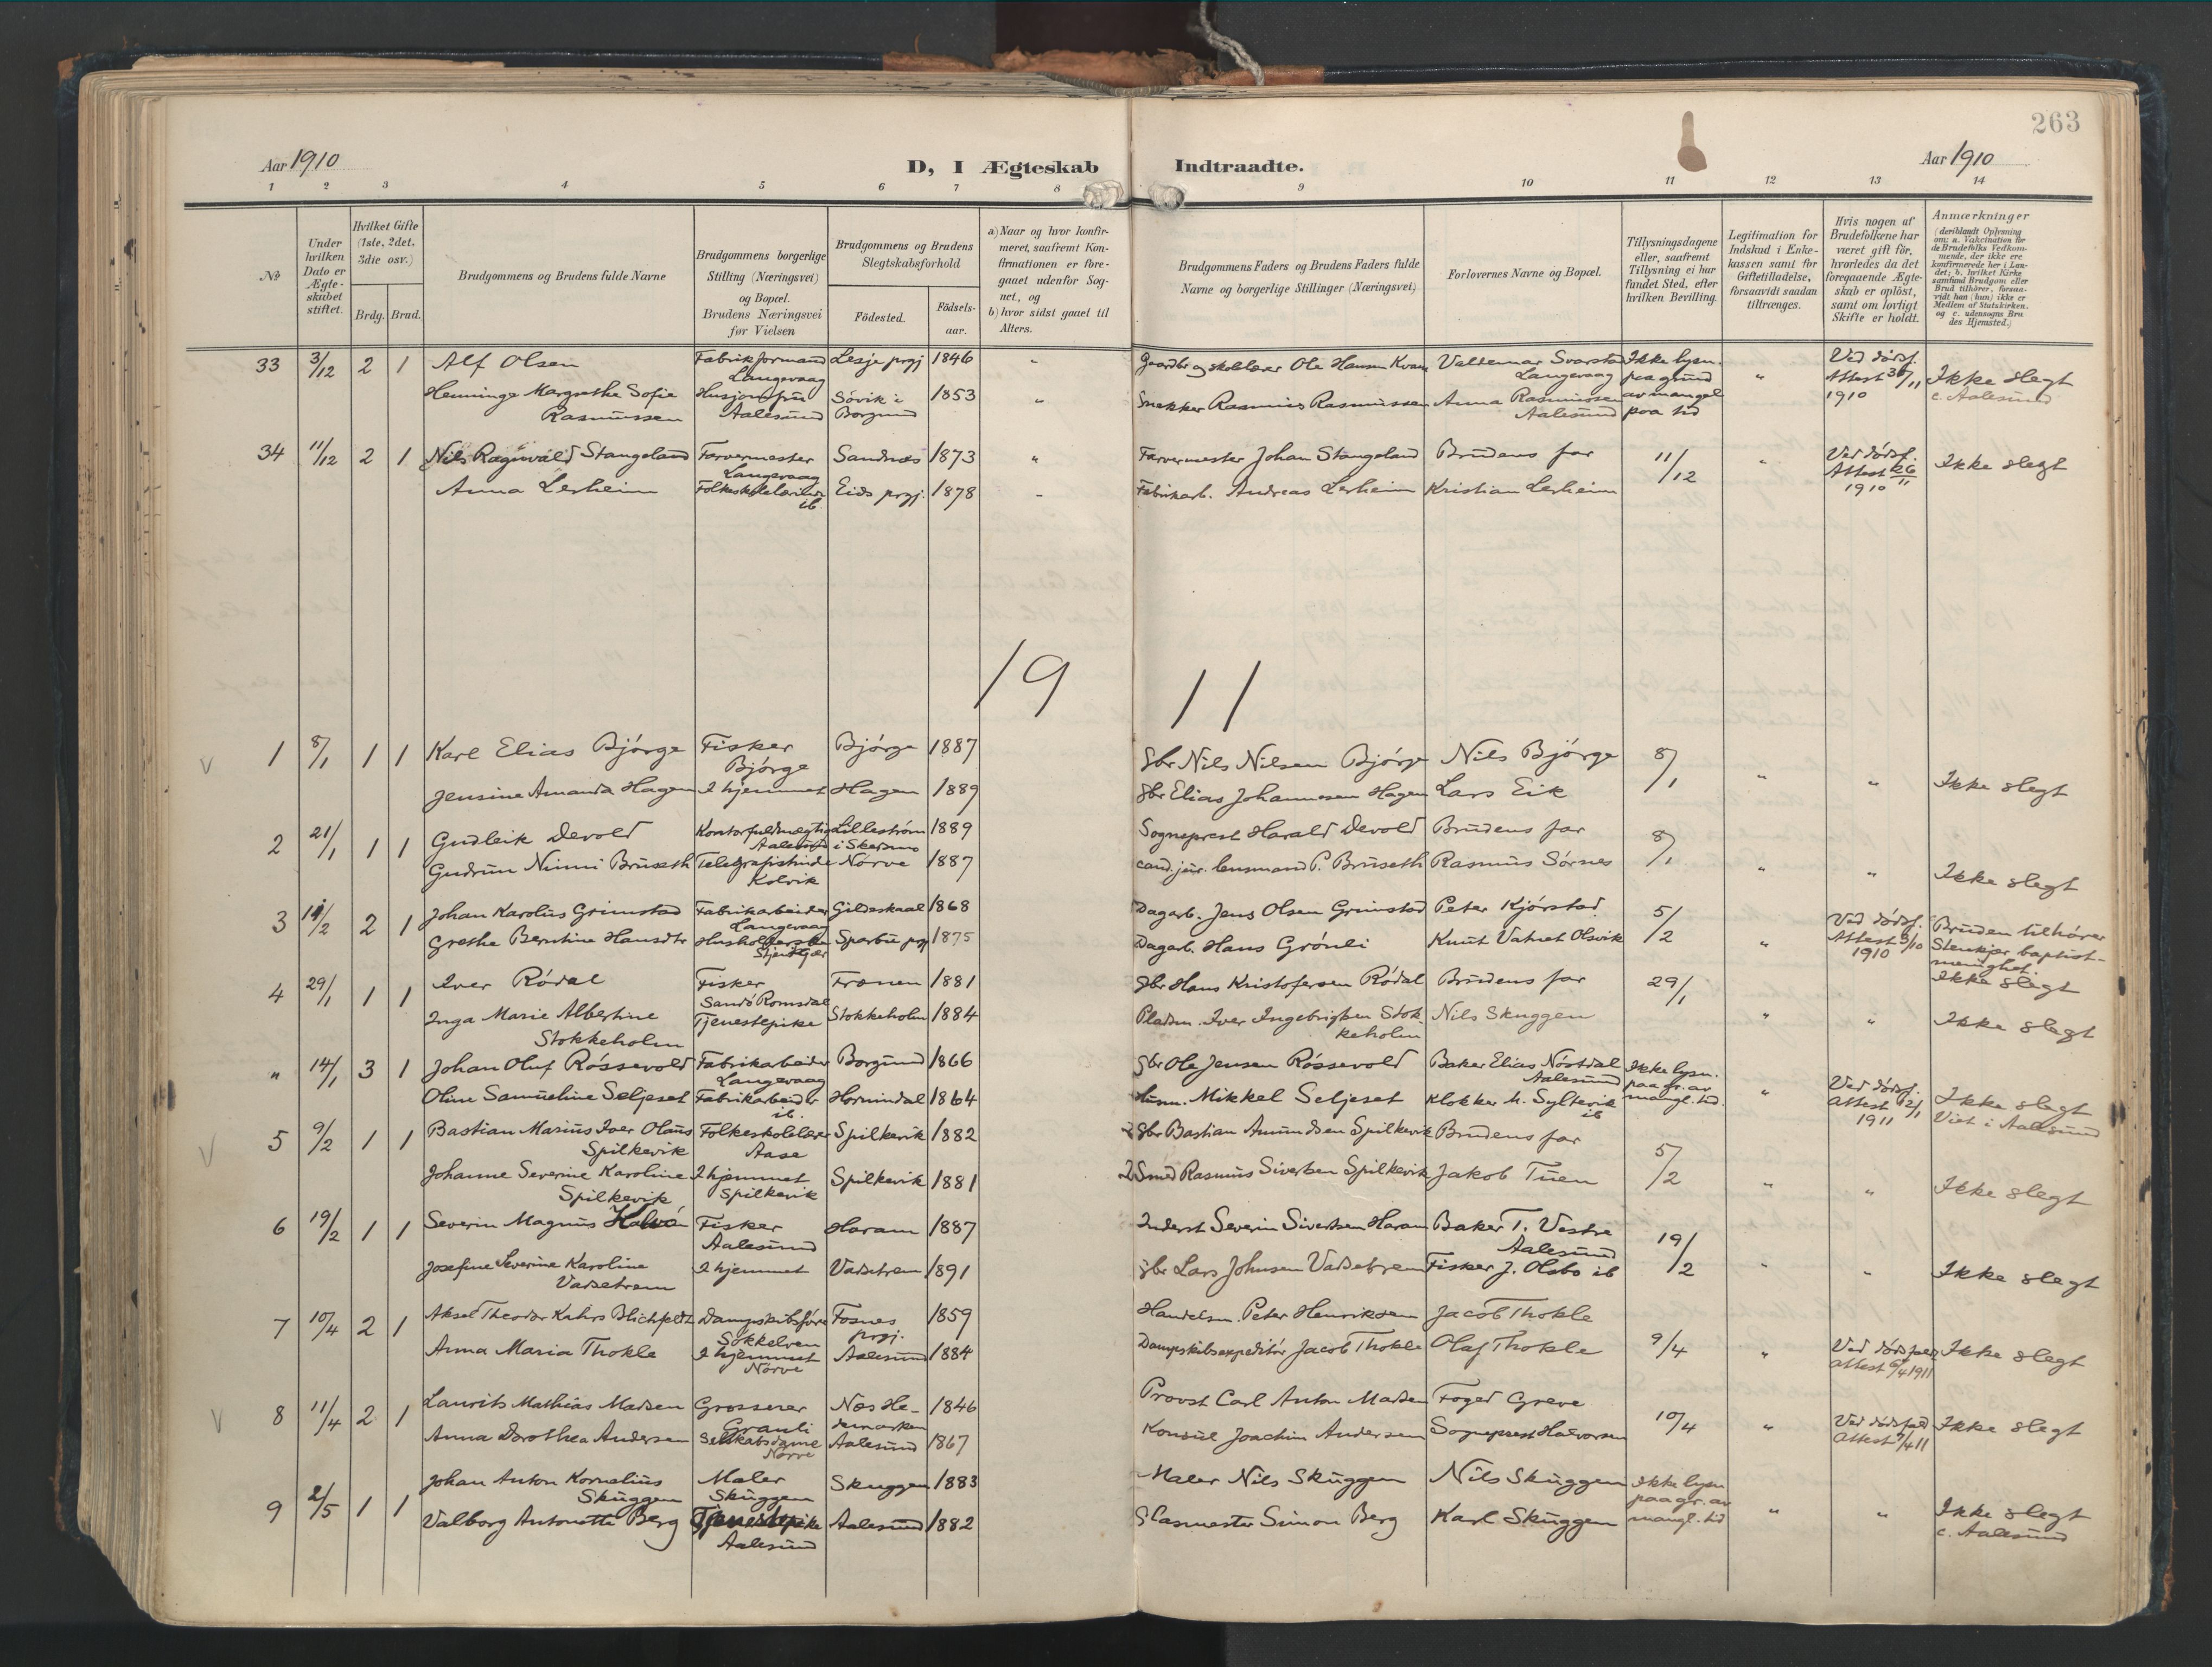 263
Aar 1910
D, I Ægteskab Indtraadte.
Aar 1910
1 2 3 4 5 6 7 8 9 10 11 12 13 14
No
Under hvilken Dato er Ægteskabet stiftet.
Hvilket Gifte (1ste, 2det, 3die osv.)
Brdg. Brud.
Brudgommens og Brudens fulde Navne
Brudgommens borgerlige Stilling (Næringsvei) og Bopæl. Brudens Næringsvei før Vielsen
Brudgommens og Brudens Slegtskabsforhold
Fødested.
Fødsels-aar.
a) Naar og hvor konfirmeret, saafremt Konfirmationen er foregaaet udenfor Sognet, og
b) hvor sidst gaaet til Alters.
Brudgommens Faders og Brudens Faders fulde Navne og borgerlige Stillinger (Næringsvei)
Forlovernes Navne og Bopæl.
Tillysningsdagene eller, saafremt Tillysning ei har fundet Sted, efter hvilken Bevilling.
Legitimation for Indskud i Enkekassen samt for Giftetilladelse, forsaavidt saadan tiltrænges.
Hvis nogen af Brudefolkene har været gift før, hvorledes da det foregaaende Ægteskab er opløst, samt om lovligt Skifte er holdt.
Anmærkninger
(deriblandt Oplysning om: a. Vakcination for de Brudefolks Vedkommende, der ikke ere konfirmerede her i Landet; b. hvilket Kirkesamfund Brudgom eller Brud tilhører, forsaavidt han (hun) ikke er Medlem af Statskirken. og c. udensogns Brudes Hjemsted.)
33 3/12 2 1 Alf Olsen Fabrikformand Langevaag Lesje prgj 1846 " Gaardbr og skolelærer Ole Hansen Kvam Valdemar Svarstad Langevaag Ikke lysn. paa grund av mangel paa tid " Ved dødsf. Attest 30/11 1910 Ikke slegt
c. Aalesund
Henninge Margrethe Sofie Rasmussen Husjomfru Aalesund Søvik i Borgund 1853 " Snekker Rasmus Rasmussen Anna Rasmussen Aalesund
34 11/12 2 1 Nils Ragnvald Stangeland Farvermester Langevaag Sandnæs 1873 " Farvermester Johan Stangeland Brudens far 11/12 " Ved dødsf. Attest 26/11 1910 Ikke slegt
Anna Lerheim Folkeskolelærerinde ib. Eids prgj. 1878 " Fabrikarb. Andreas Lerheim Kristian Lerheim
19 11
V 1 8/1 1 1 Karl Elias Bjørge Fisker Bjørge Bjørge 1887 Gbr Nils Nilsen Bjørge Nils Bjørge 8/1 " " Ikke slegt
Jensine Amanda Hagen I hjemmet Hagen 1889 Gbr Elias Johannesen Hagen Lars Eik
2 21/1 1 1 Gudleik Devold Kontorfuldmægtig Aalesund Lillestrøm i Skedsmo 1889 Sogneprest Harald Devold Brudens far 8/1 " " Ikke slegt
Gudrun Ninni Bruseth Telegrafistinde Kolvik Nørve 1887 cand. jur. lensmand P. Bruseth Rasmus Sørnes
3 /2 2 1 Johan Karolius Grimstad Fabrikarbeider Langevaag Gildeskaal 1868 Dagarb. Jens Olsen Grimstad Peter Kjørstad. 5/2 " Ved dødsf. Attest /10 1910 Bruden tilhører Stenkjer baptist-menighet. Ikke slegt
Grethe Berntine Hansdtr Husholderske Sparbu prgj 1875 Dagarb. Hans Grønli Knut Vatnet Olsvik
4 29/1 1 1 Iver Rødal Fisker Sandø Romsdal Frænen 1881 Gbr Hans Kristofersen Rødal Brudens far 29/1 " " Ikke slegt
Inga Marie Albertine Stokkeholm Tjenestepike Stokkeholm 1884 Pladsm. Iver Ingebrigtsen Stokkeholm Nils Skuggen
" 14/1 3 1 Johan Oluf Røssevold Fabrikarbeider Langevaag Borgund 1866 Gbr Ole Jensen Røssevold Baker Elias Nøstdal Aalesund Ikke lysn. paa gr. av mangl. tid. " Ved dødsf. Attest 2/1 1911 Ikke slegt
Viet i Aalesund
Oline Samueline Seljeset Fabrikarbeider ib. Hornindal 1864 Husm. Mikkel Seljeset Klokker M. Syltevik ib
V 5 9/2 1 1 Bastian Marius Iver Olaus Spilkevik Folkeskolelærer Aase Spilkevik 1882 Gbr Bastian Amundsen Spilkevik Brudens far 5/2 " " Ikke slegt
Johanne Severine Karoline Spilkevik I hjemmet Spilkevik Spilkevik 1881 Smed Rasmus Sivertsen Spilkevik Jakob Tuen
6 19/2 1 1 Severin Magnus Fisker Aalesund Haram 1887 Inderst Severin Sivertsen Haram Baker T. Vestre Aalesund 19/2 " " Ikke slegt
Josefine Severine Karoline Vadsetrem I hjemmet Vadsetrem 1891 Gbr Lars Johnsen Vadsetrem Fisker J. Olsbo ib
7 10/4 2 1 Aksel Theodor Kahrs Blichfeldt Dampskibsfører Søkkelven Fosnes prgj. 1859 Handelsm. Peter Henriksen Jacob Thokle 9/4 " Ved dødsfald Attest 6/4 1911 Ikke slegt
Anna Maria Thokle I hjemmet Nørve Aalesund 1884 Dampskibsexpeditør Jacob Thokle Olaf Thokle
V 8 11/4 2 1 Laurits Mathias Madsen Grosserer Granli Næs Hedemarken 1846 Provst Carl Anton Madsen Foged Greve 10/4 " Ved dødsfald Attest 7/4 11 Ikke slegt
Anna Dorothea Andersen Selskabsdame Nørve Aalesund 1867 Konsul Joachim Andersen Sogneprest Halvorsen
9 2/5 1 1 Johan Anton Kornelius Skuggen Maler Skuggen Skuggen 1883 Maler Nils Skuggen Nils Skuggen Ikke lysn paa gr. av mangl. tid " " Ikke slegt
c. Aalesund
Valborg Antonette Berg Tjenestepike Aalesund Aalesund 1882 Glasmester Simon Berg Karl Skuggen